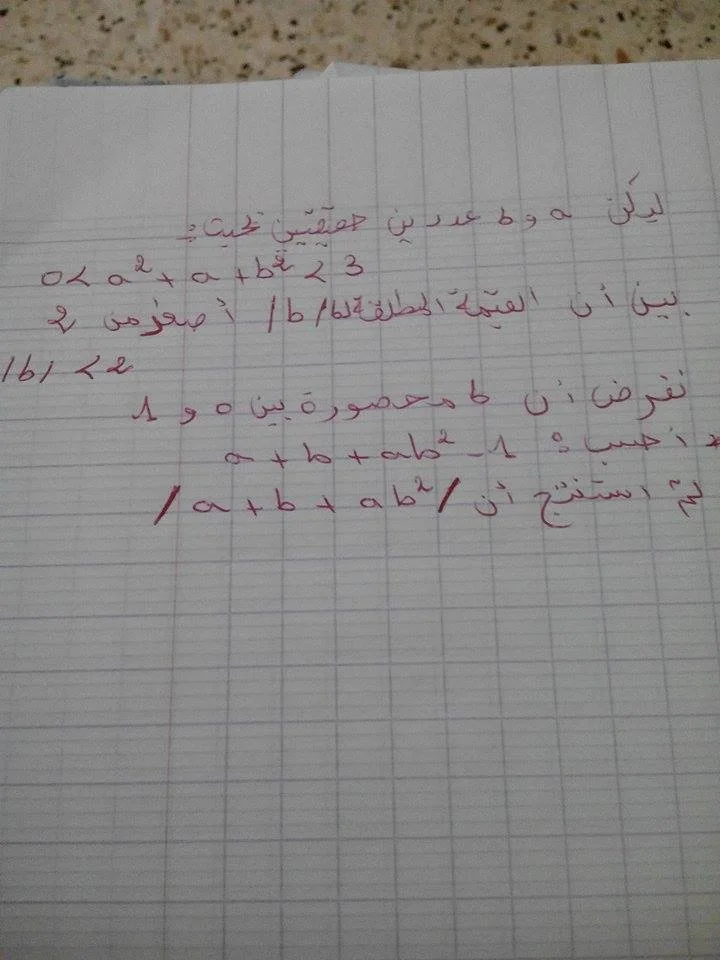 ليكن a و b عددين حقيقيين بحيث:
0 < a² + a + b² < 3
بين أن القيمة المطلقة لـ b /b/ أصغر من 2
/b/ < 2
نفرض أن b محصورة بين 0 و 1
* احسب : a + b + ab² - 1
ثم استنتج أن /a + b + ab²/